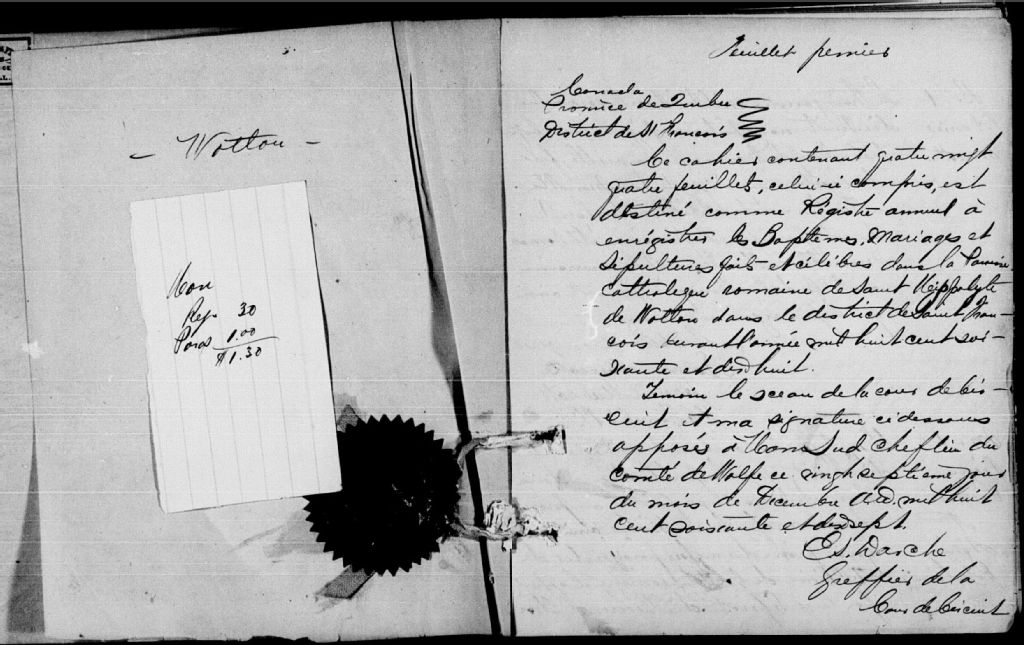 - Wotton -
Ham
Reg. 30
Paras 1.00
$1.30
Feuillet premier
Canada
Province de Québec
District de St François
Ce cahier contenant quatre vingt
quatre feuillets, celui-ci compris, est
destiné comme Régistre annuel à
enrégistrer les Baptêmes, Mariages et
Sépultures faits et célébrés dans la Paroisse
Catholique romaine de Saint Hippolyte
de Wotton dans le district de Saint Fran-
çois durant l'année mil huit cent soi-
xante et dix huit.
Temoin le sceau de la cour de Cir-
cuit et ma signature ci dessous
apposés à Ham Sud chef lieu du
comté de Wolfe ce vingt septieme jour
du mois de Décembre A.D. mil huit
cent soixante et dix sept.
E. S. Darche
Greffier de la
Cour de Circuit